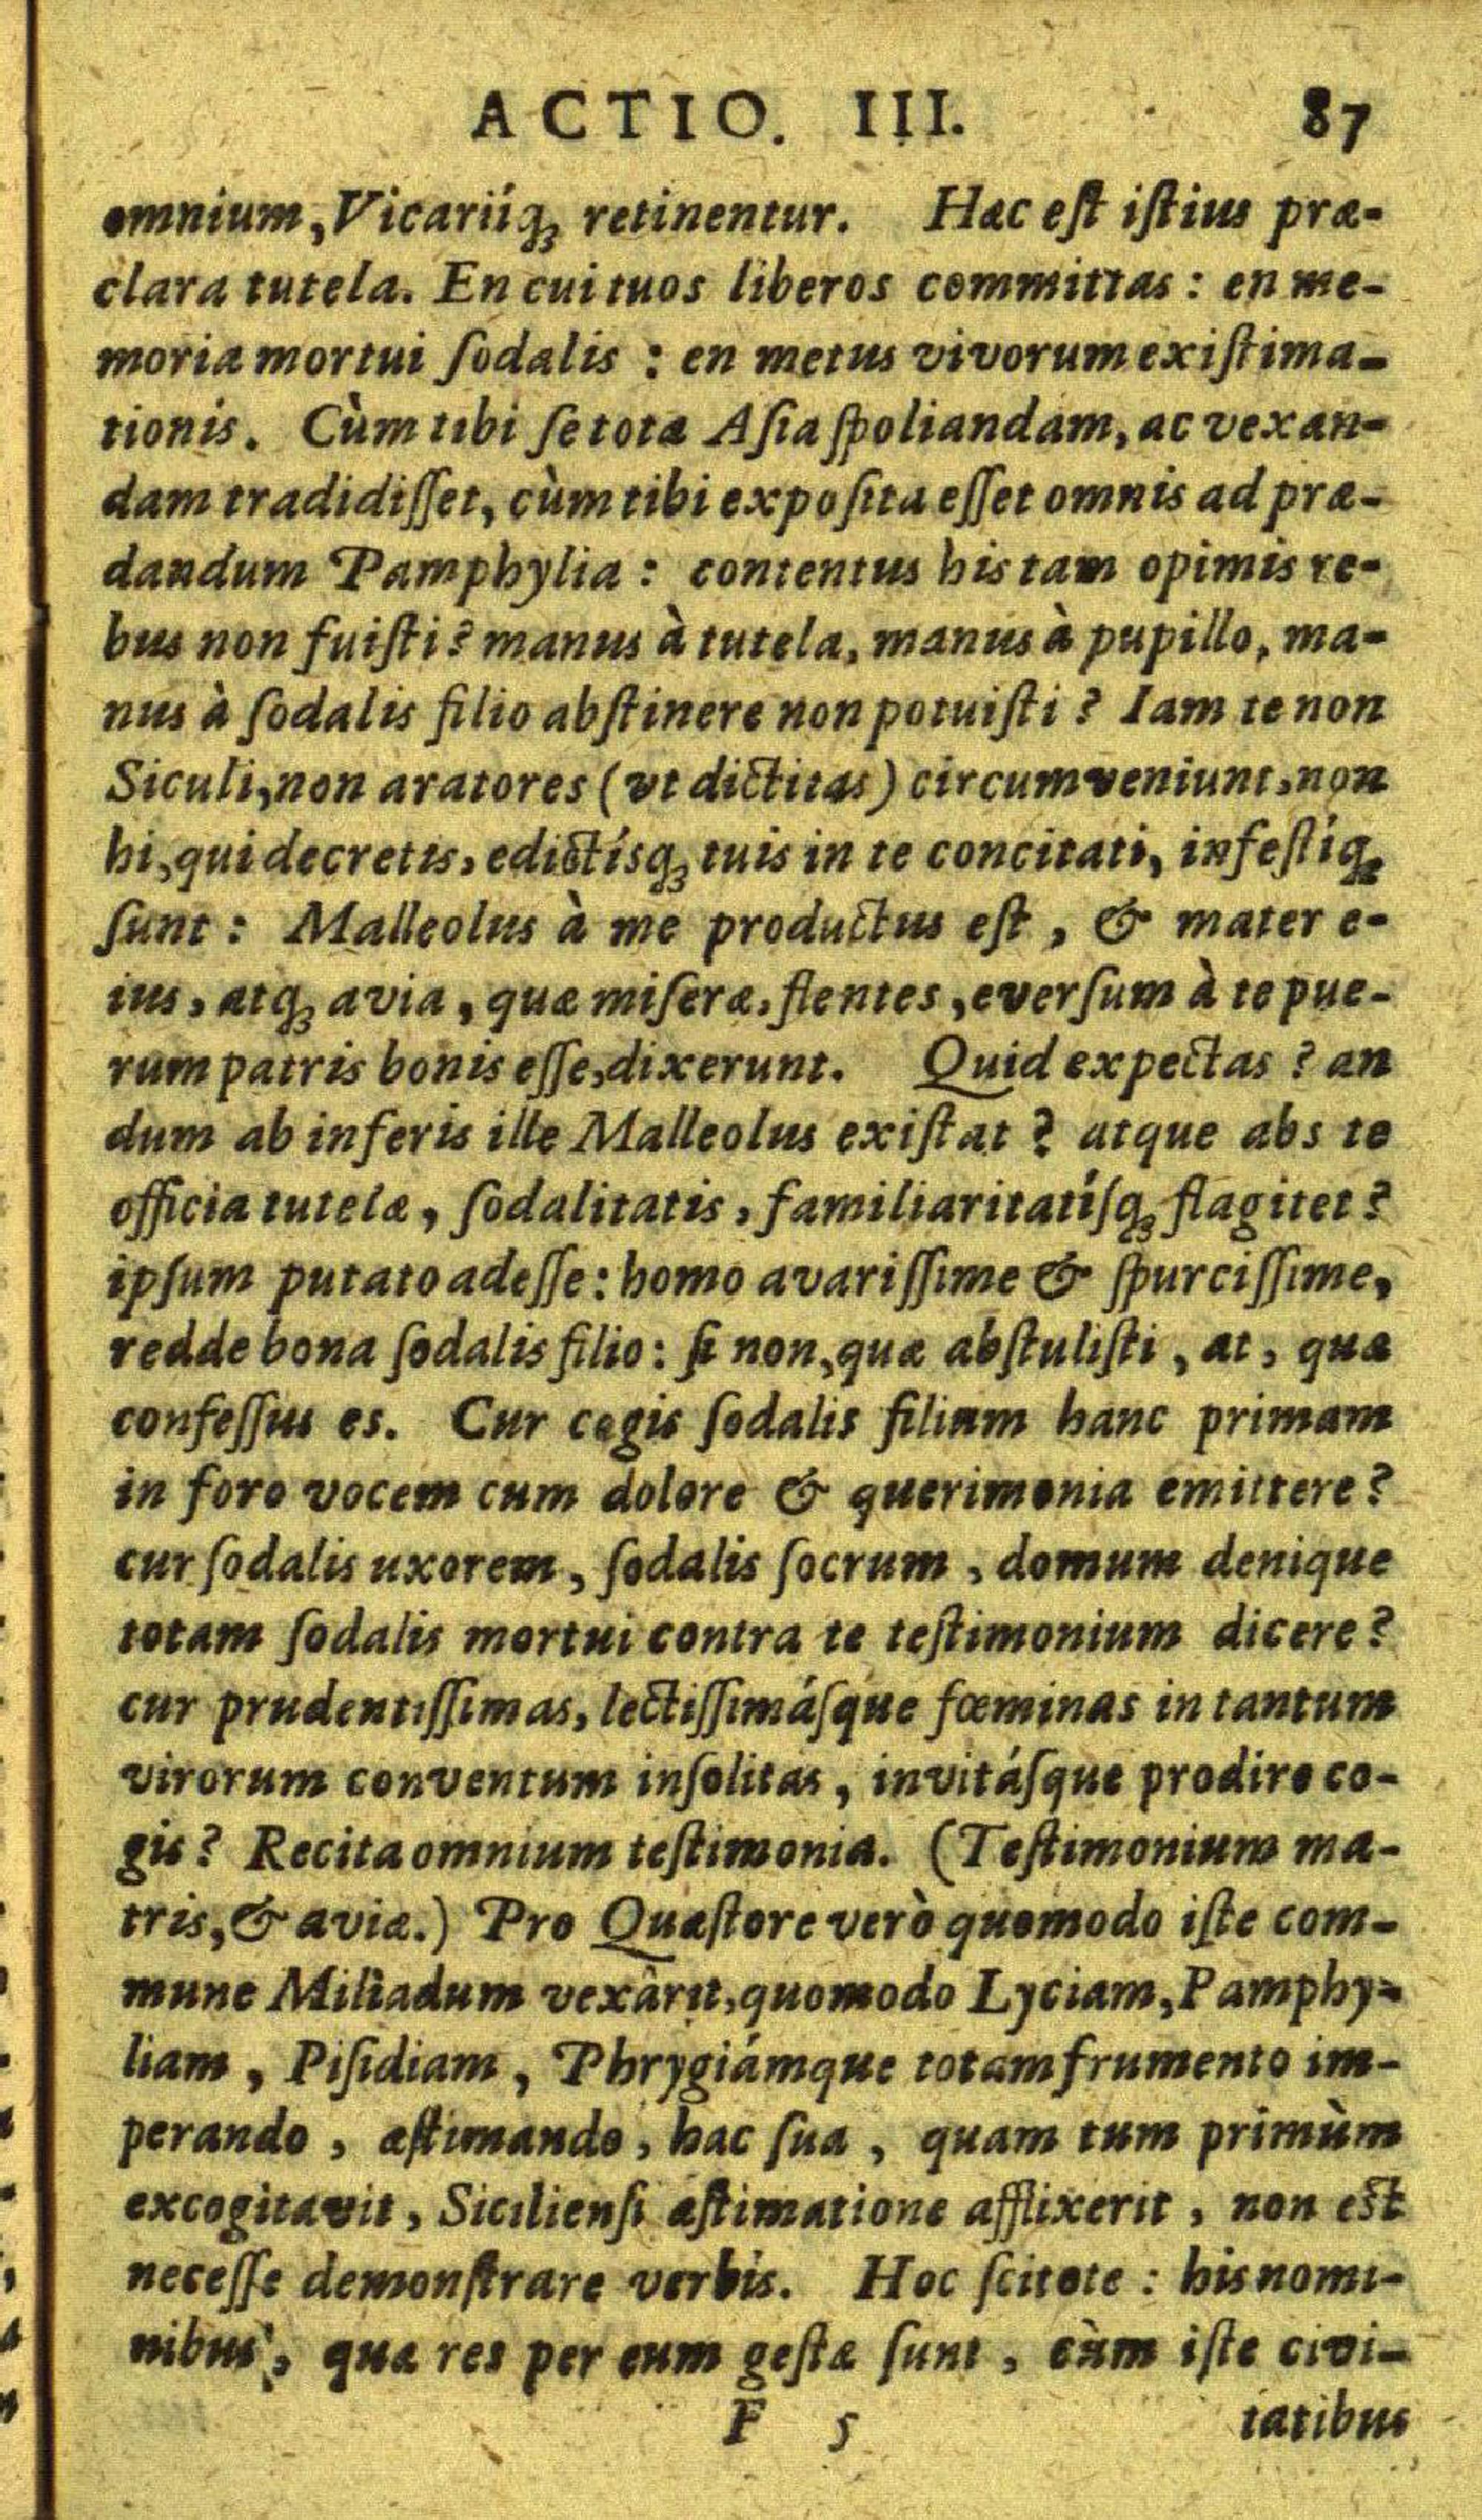 ACTIO. III. 87
omnium, Vicariíq́; retinentur. Hæc eſt iſtius præ-
clara tutela. En cui tuos liberos committas: en me-
moria mortui ſodalis : en metus vivorum exiſtima-
tionis. Cùm tibi ſe tota Aſia ſpoliandam, ac vexan-
dam tradidiſſet, cùm tibi expoſita eſſet omnis ad præ-
dandum Pamphylia: contentus his tam opimis re-
bus non fuiſti? manus à tutela, manus à pupillo, ma-
nus à ſodalis filio abſtinere non potuiſti? Iam te non
Siculi, non aratores (ut dictitas) circumveniunt, non
hi, qui decretis, edictísq; tuis in te concitati, infeſtíq;
ſunt: Malleolus à me productus eſt, & mater e-
ius, atq; avia, quæ miſeræ, flentes, everſum à te pue-
rum patris bonis eſſe, dixerunt. Quid expectas? an
dum ab inferis ille Malleolus exiſtat? atque abs te
officia tutelæ, ſodalitatis, familiaritatíſq; flagitet?
ipſum putato adeſſe: homo avariſſime & ſpurciſſime,
redde bona ſodalis filio: ſi non, quæ abſtuliſti, at, quæ
confeſſus es. Cur cogis ſodalis filium hanc primam
in foro vocem cum dolore & querimonia emittere?
cur ſodalis uxorem, ſodalis ſocrum, domum denique
totam ſodalis mortui contra te teſtimonium dicere?
cur prudentiſſimas, lectiſſimáſque fœminas in tantum
virorum conventum inſolitas, invitáſque prodire co-
gis? Recita omnium teſtimonia. (Teſtimonium ma-
tris, & aviæ.) Pro Quæſtore verò quomodo iſte com-
mune Miliadum vexàrit, quomodo Lyciam, Pamphy-
liam, Piſidiam, Phrygiámque totam frumento im-
perando, æſtimando, hac ſua, quam tum primùm
excogitavit, Sicilienſi æſtimatione afflixerit, non eſt
neceſſe demonſtrare verbis. Hoc ſcitote: his nomi-
nibus, quæ res per eum geſtæ ſunt, cùm iſte civi-
F 5 tatibus